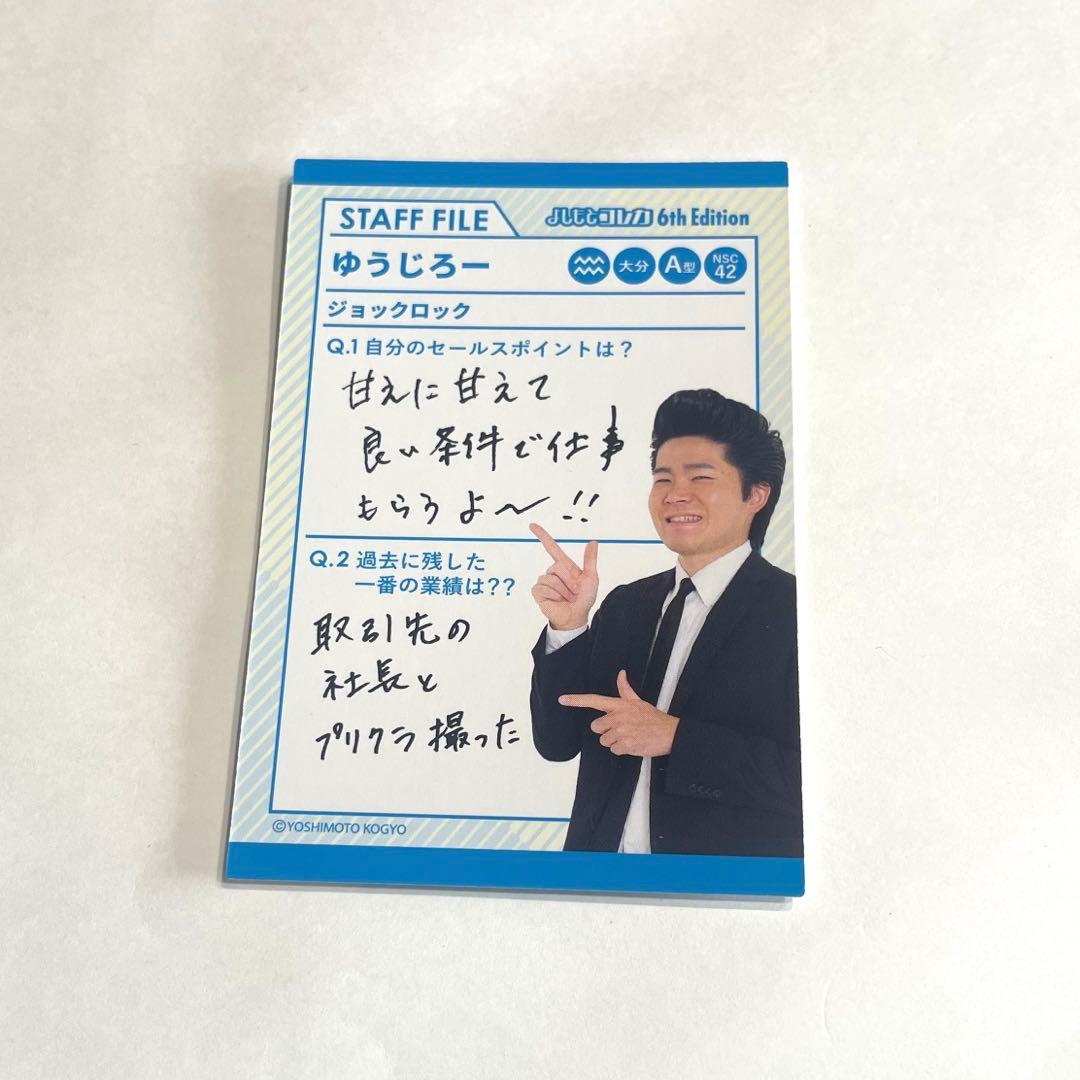 STAFF FILE
よしもとコレカ 6th Edition
ゆうじろー
大分 A型 NSC 42
ジョックロック
Q.1 自分のセールスポイントは?
甘えに甘えて
良い条件で仕事
もらうよ〜!!
Q.2 過去に残した
一番の業績は??
取引先の
社長と
プリクラ撮った
©YOSHIMOTO KOGYO